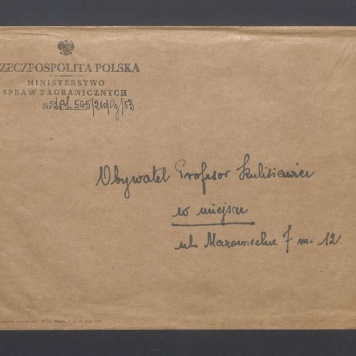 RZECZPOSPOLITA POLSKA
MINISTERSTWO
SPRAW ZAGRANICZNYCH
Obywatel Profesor Kulisiewicz
w miejscu
ul. Mazowiecka 7 m. 12